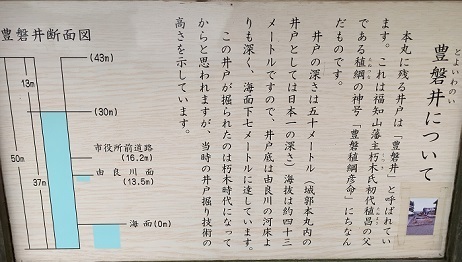 とよいわのい
豊磐井について
本丸に残る井戸は「豊磐井」と呼ばれてい
ます。これは福知山藩主朽木氏初代稙昌の父
である稙綱の神号「豊磐稙綱彦命」にちなん
だものです。
井戸の深さは五十メートル（城郭本丸内の
井戸としては日本一の深さ）海抜は約四十三
メートルですので、井戸底は由良川の河床よ
りも深く、海面下七メートルに達しています。
この井戸が掘られたのは朽木時代になって
からと思われますが、当時の井戸掘り技術の
高さを示しています。
豊磐井断面図
(43m)
13m
(30m)
市役所前道路
(16.2m)
50m
由良川面
(13.5m)
37m
海面(0m)